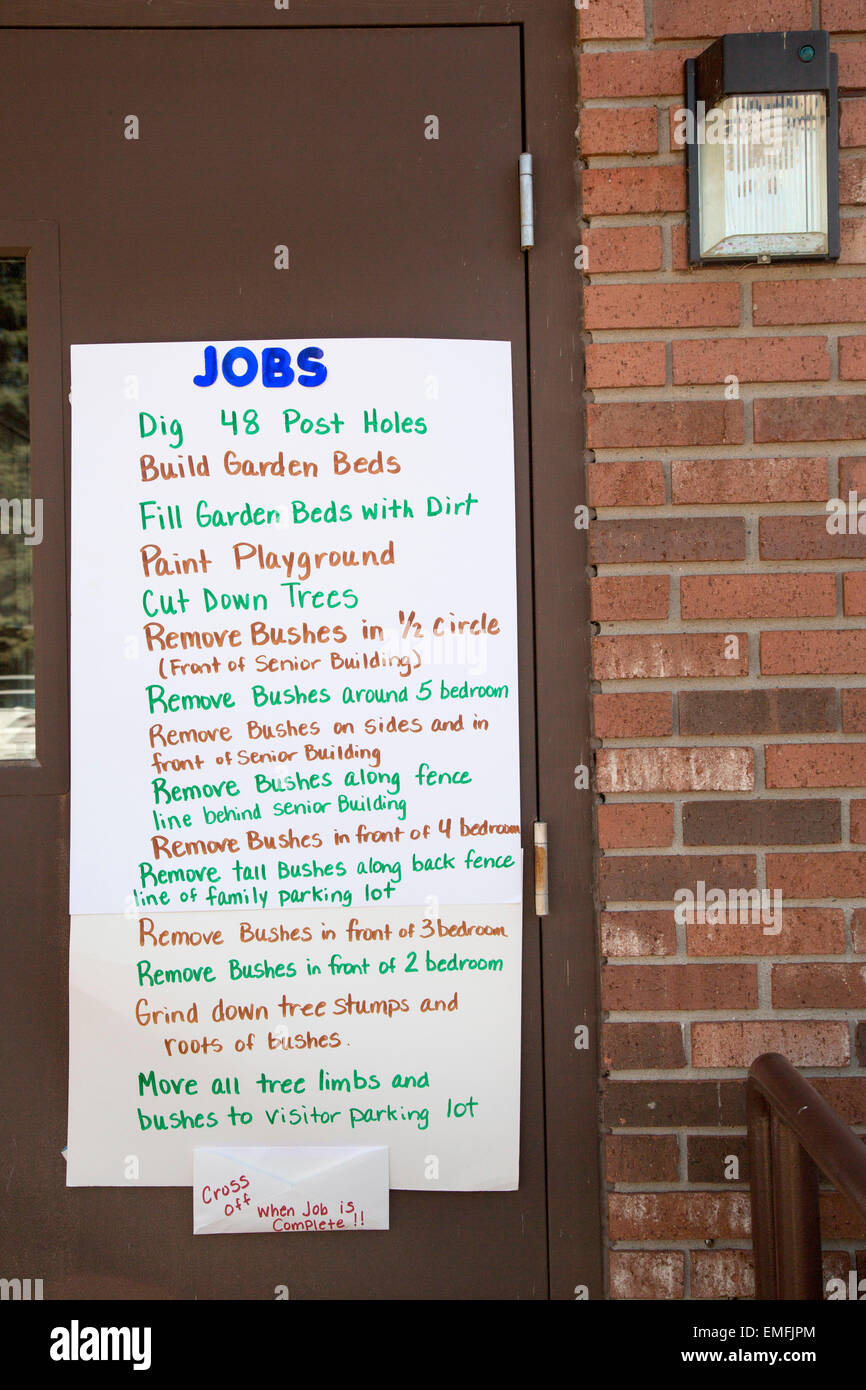 JOBS
Dig 48 Post Holes
Build Garden Beds
Fill Garden Beds with Dirt
Paint Playground
Cut Down Trees
Remove Bushes in 1/2 circle
(Front of Senior Building)
Remove Bushes around 5 bedroom
Remove Bushes on sides and in
front of Senior Building
Remove Bushes along fence
line behind senior Building
Remove Bushes in front of 4 bedroom
Remove tall Bushes along back fence
line of family parking lot
Remove Bushes in front of 3 bedroom
Remove Bushes in front of 2 bedroom
Grind down tree stumps and
roots of bushes.
Move all tree limbs and
bushes to visitor parking lot
Cross
off when Job is
Complete !!
alamy
Image ID: EMFJPM
www.alamy.com